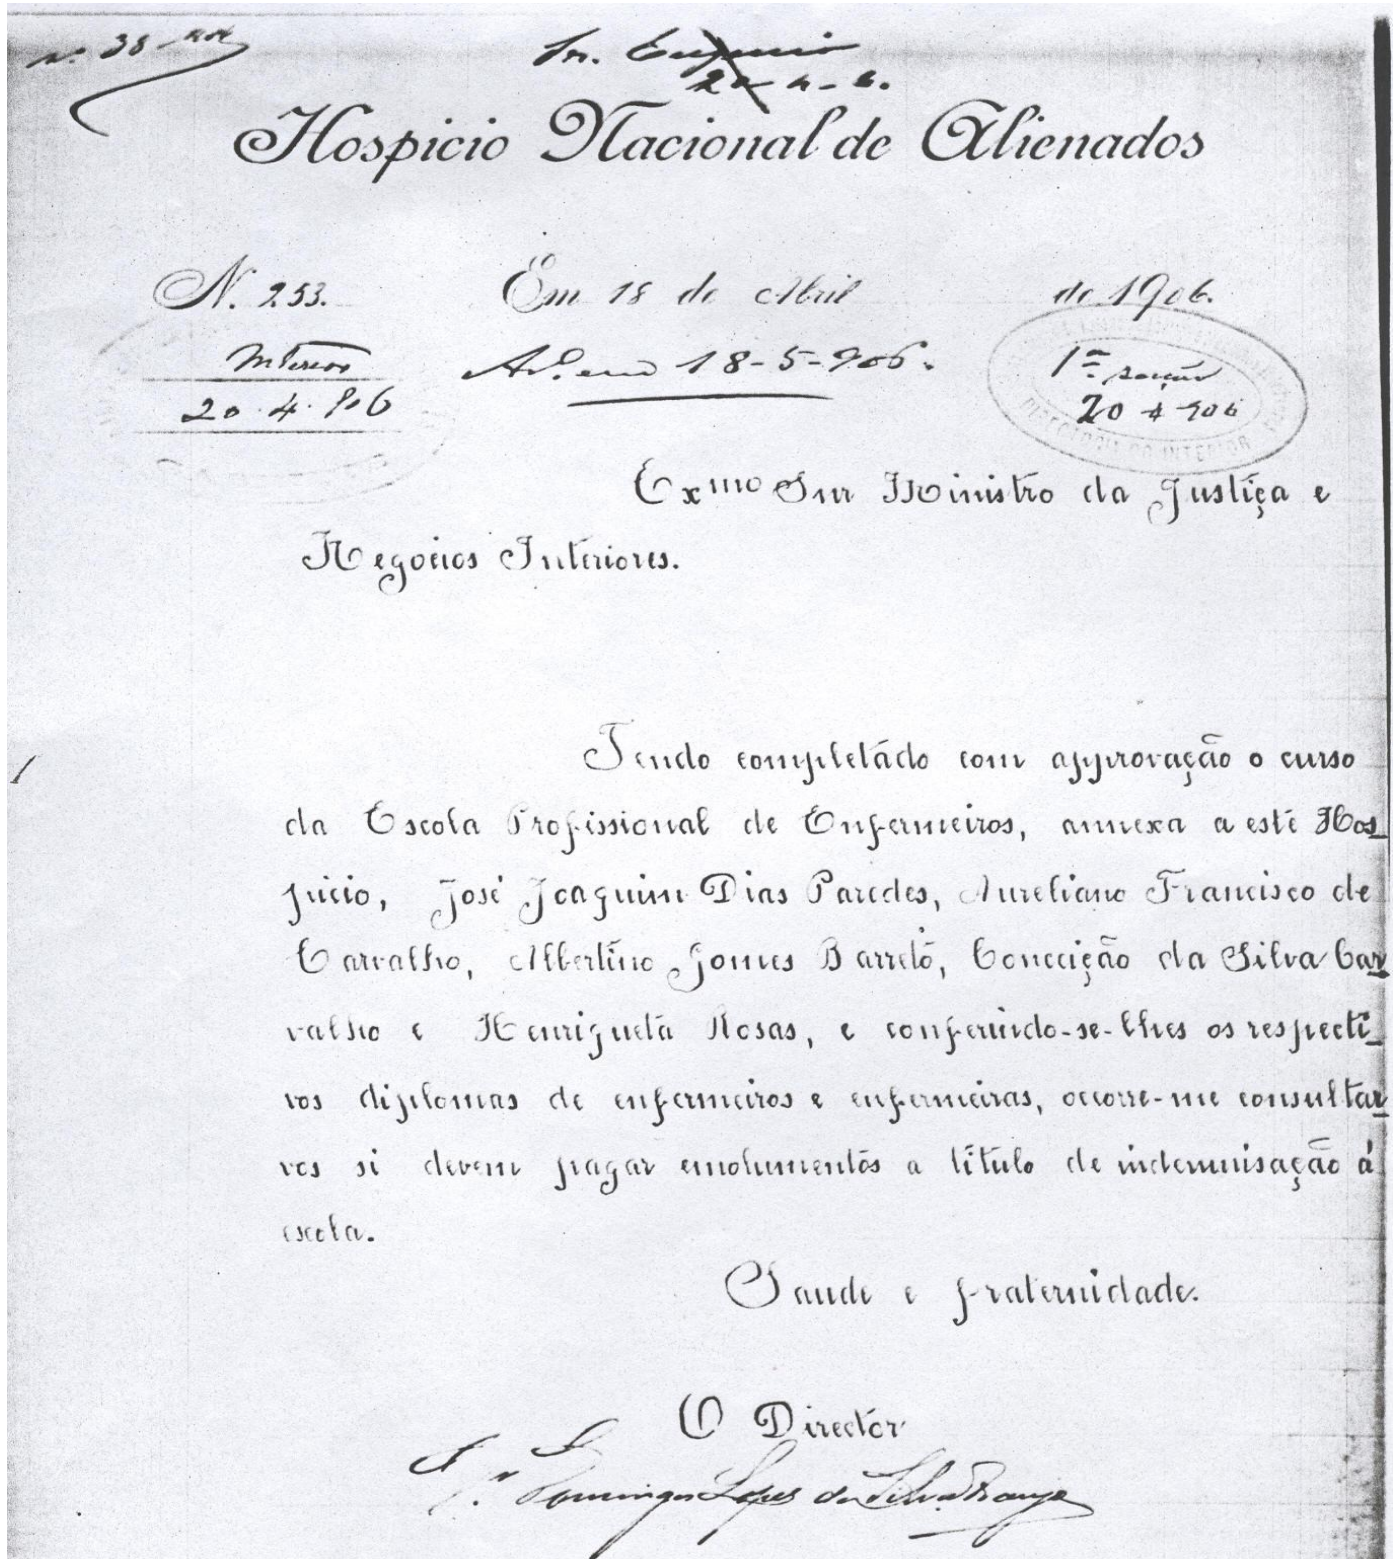 Nº 38
Snr. Eugenio
20-4-6.
Hospicio Nacional de Alienados
N. 253. Em 18 de Abril de 1906.
Interior Av.º em 18-5-906. 1ª secção
20.4.906 20-4-906
DIRECTORIA DO INTERIOR
Exmo Snr Ministro da Justiça e
Negocios Interiores.
Tendo completado com approvação o curso
da Escola Profissional de Enfermeiros, annexa a este Hos_
picio, José Joaquim Dias Paredes, Aureliano Francisco de
Carvalho, Albertino Gomes Barreto, Conceição da Silva Car_
valho e Henriqueta Rosas, e conferindo-se-lhes os respecti_
vos diplomas de enfermeiros e enfermeiras, occorre-me consultar_
vos si devem pagar emolumentos a titulo de indemnisação á
escola.
Saude e fraternidade.
O Director
Dr. Domingos Lopes da Silva Araujo